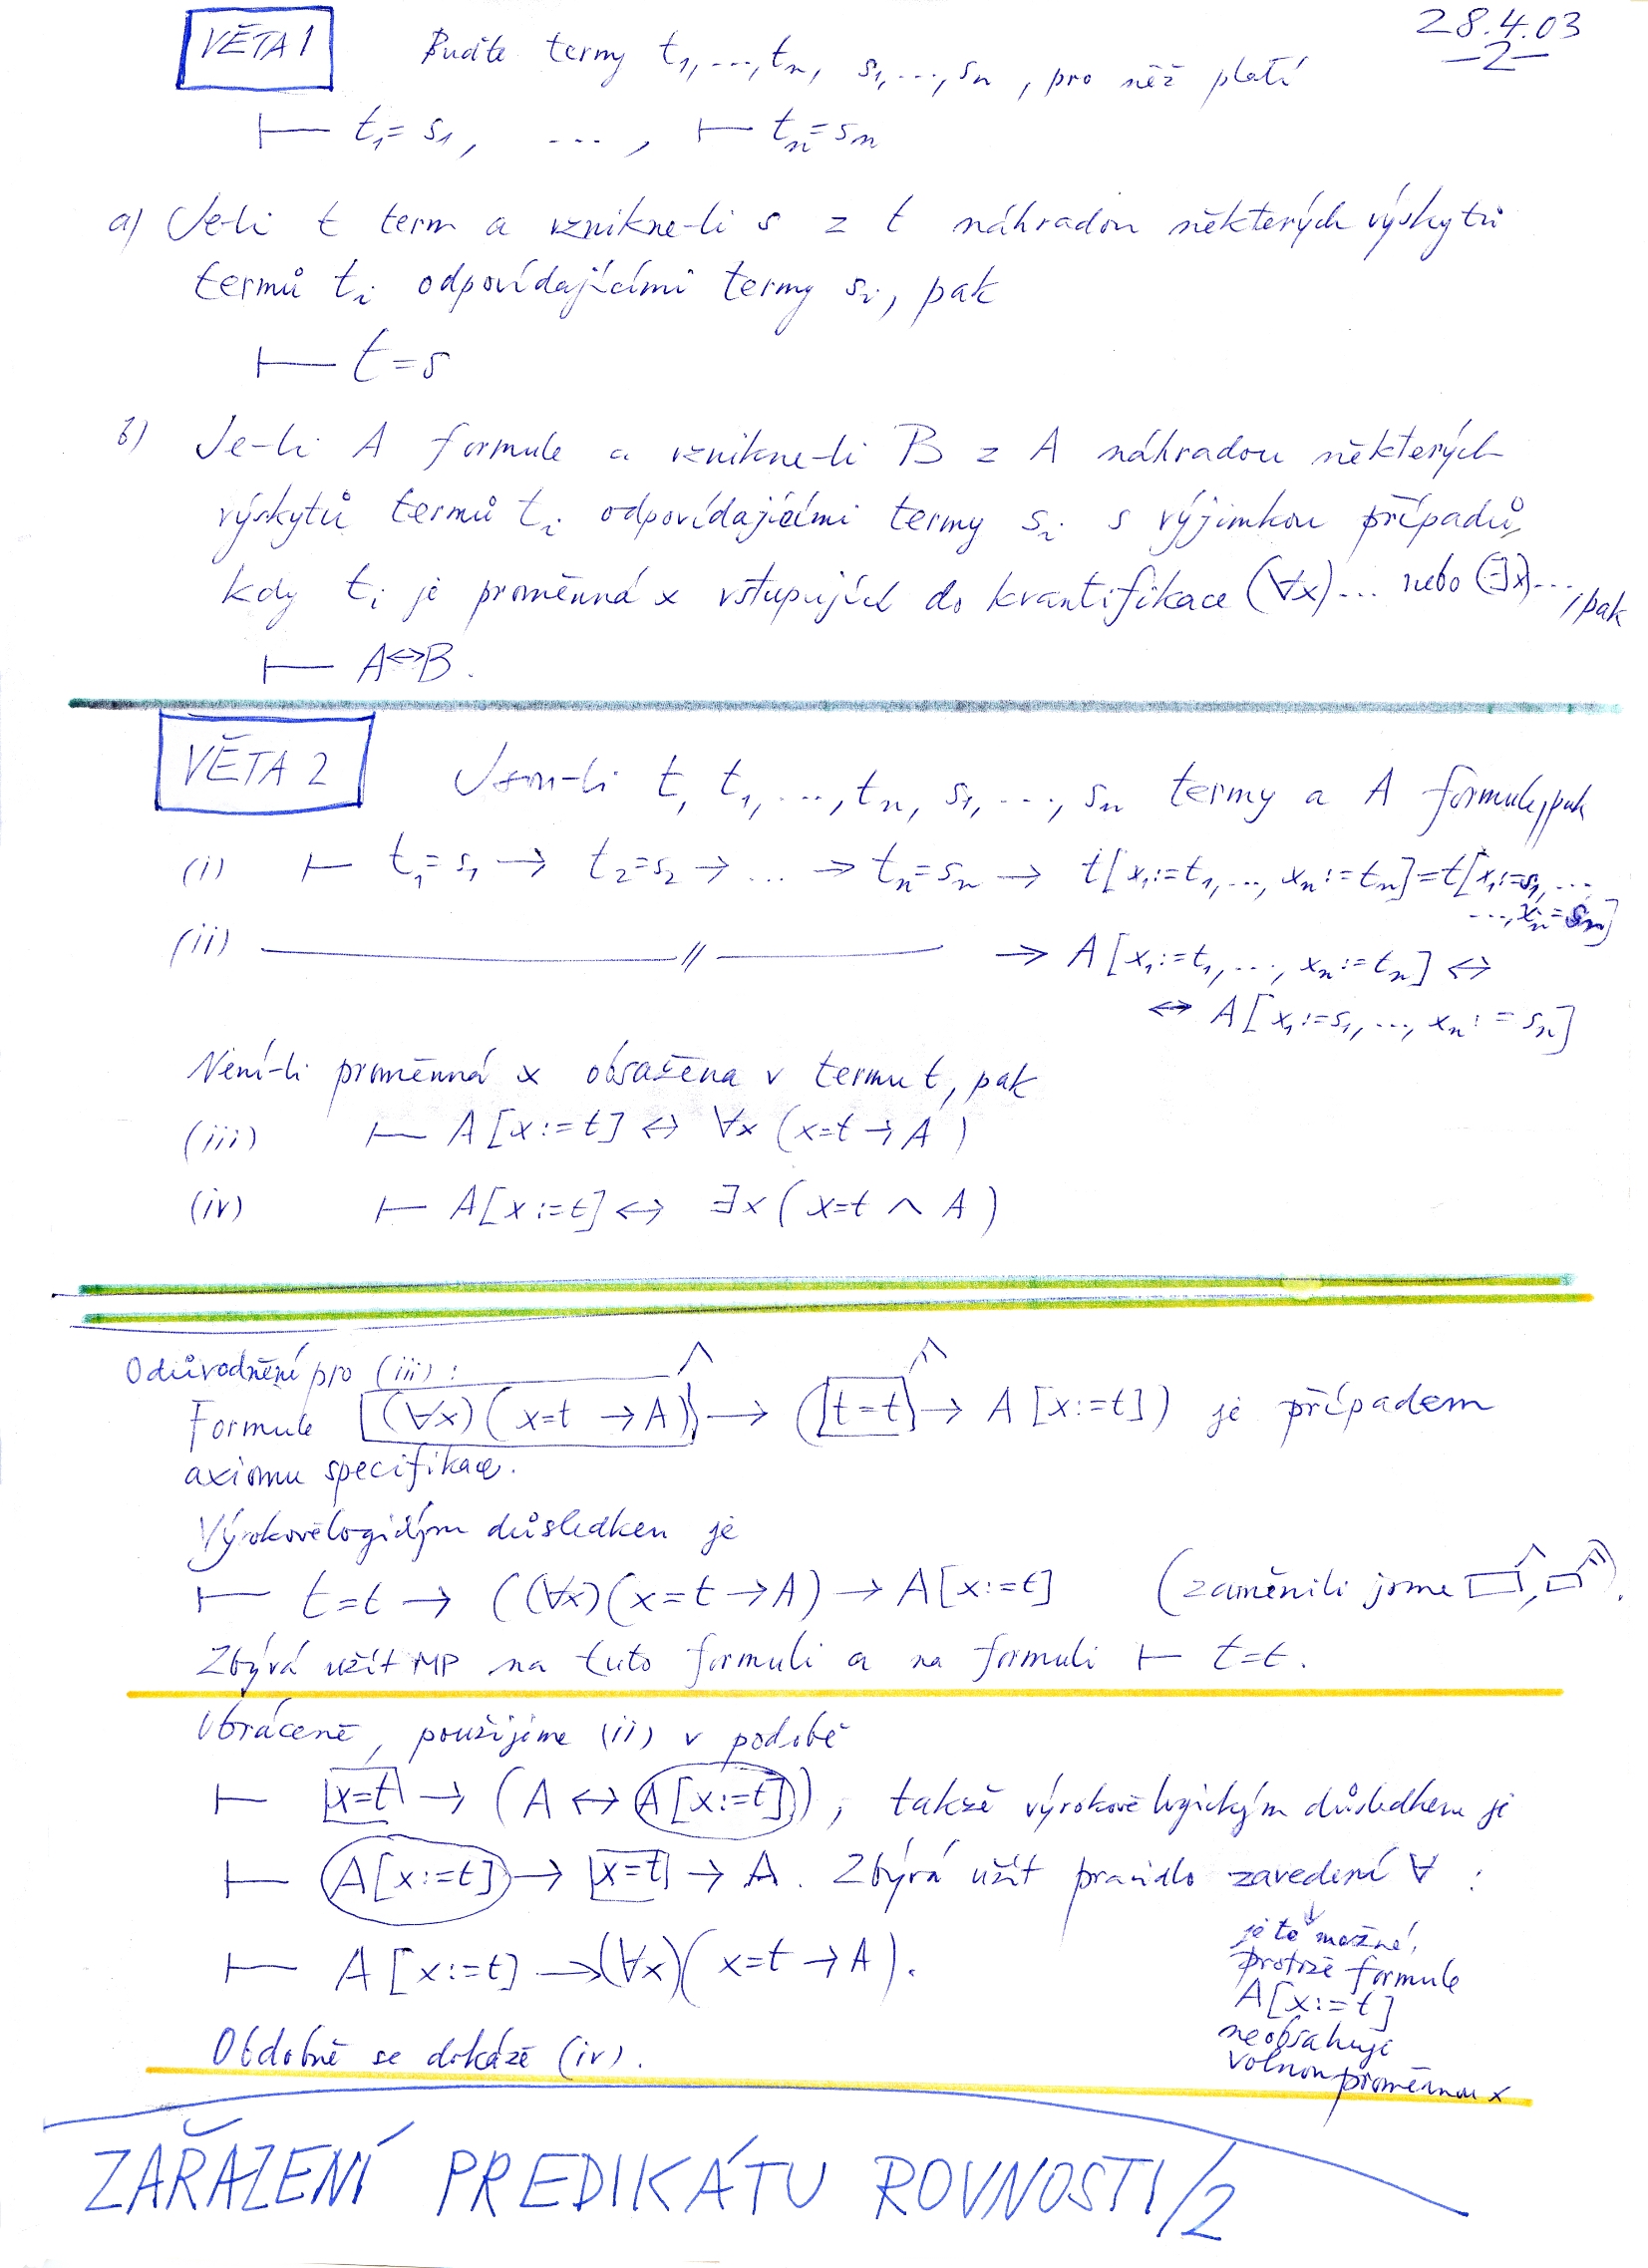 28.4.03
-2-
VĚTA 1 Buďte termy t₁, ..., tₙ, s₁, ..., sₙ, pro něž platí
⊢ t₁=s₁, ..., ⊢ tₙ=sₙ
a) Je-li t term a vznikne-li s z t náhradou některých výskytů
termů tᵢ odpovídajícími termy sᵢ, pak
⊢ t=s
b) Je-li A formule a vznikne-li B z A náhradou některých
výskytů termů tᵢ odpovídajícími termy sᵢ s výjimkou případů,
kdy tᵢ je proměnná x vstupující do kvantifikace (∀x)... nebo (∃x)..., pak
⊢ A↔B.
VĚTA 2 Jsou-li t, t₁, ..., tₙ, s₁, ..., sₙ termy a A formule, pak
(i) ⊢ t₁=s₁ → t₂=s₂ → ... → tₙ=sₙ → t[x₁:=t₁, ..., xₙ:=tₙ]=t[x₁:=s₁, ...
..., xₙ:=sₙ]
(ii) —— // —— → A[x₁:=t₁, ..., xₙ:=tₙ] ↔
↔ A[x₁:=s₁, ..., xₙ:=sₙ]
Není-li proměnná x obsažena v termu t, pak
(iii) ⊢ A[x:=t] ↔ ∀x (x=t → A)
(iv) ⊢ A[x:=t] ↔ ∃x (x=t ∧ A)
Odůvodnění pro (iii):
Formule (∀x)(x=t → A) → (t=t → A[x:=t]) je případem
axiomu specifikace.
Výrokovělogickým důsledkem je
⊢ t=t → ((∀x)(x=t → A) → A[x:=t] (zaměnili jsme □, □).
Zbývá užít MP na tuto formuli a na formuli ⊢ t=t.
Obráceně, použijeme (ii) v podobě
⊢ x=t → (A ↔ A[x:=t]), takže výrokově logickým důsledkem je
⊢ A[x:=t] → x=t → A. Zbývá užít pravidlo zavedení ∀:
je to možné,
protože formule
A[x:=t]
neobsahuje
volnou proměnnou x
⊢ A[x:=t] → (∀x)(x=t → A).
Obdobně se dokáže (iv).
ZAŘAZENÍ PREDIKÁTU ROVNOSTI/2